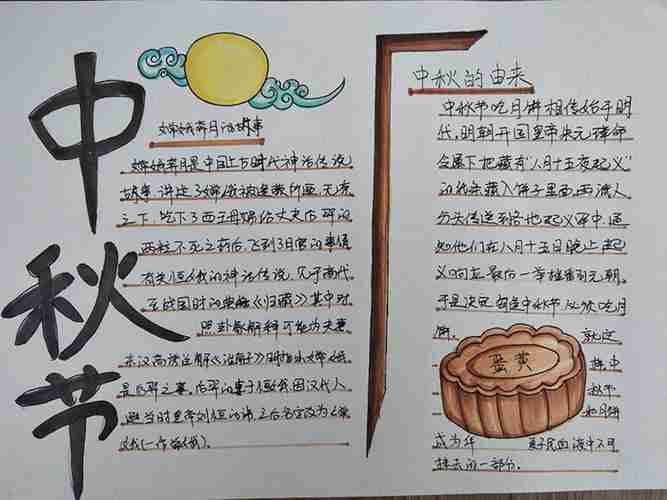 中秋节
嫦娥奔月的故事
嫦娥奔月是中国上古时代神话传说
故事,讲述了嫦娥被逢蒙所逼,无奈
之下,吃下了西王母赐给丈夫后羿的
两粒不死之药后,飞到了月宫的事情
有关恒我的神话传说,
至战国时的《归藏》其中对
卦象解释可能为夫妻
东汉高诱注解《淮南子》明指出嫦娥
是后羿之妻,后羿的妻子恒我,因汉代人
避当时皇帝刘恒的讳,之后名字改为
中秋的由来
中秋节吃月饼相传始于明
代,明朝开国皇帝朱元璋命
令属下把藏有"八月十五夜起义"
的纸条藏入饼子里面,再派人
分头传送到各地起义军中,通
知他们在八月十五日晚上起
义响应,最后一举推翻了元朝。
于是决定每逢中秋节
饼。 就这
样,中
秋节
和月饼
蛋黄
成为华 夏子民血液中不可
抹去的一部分。